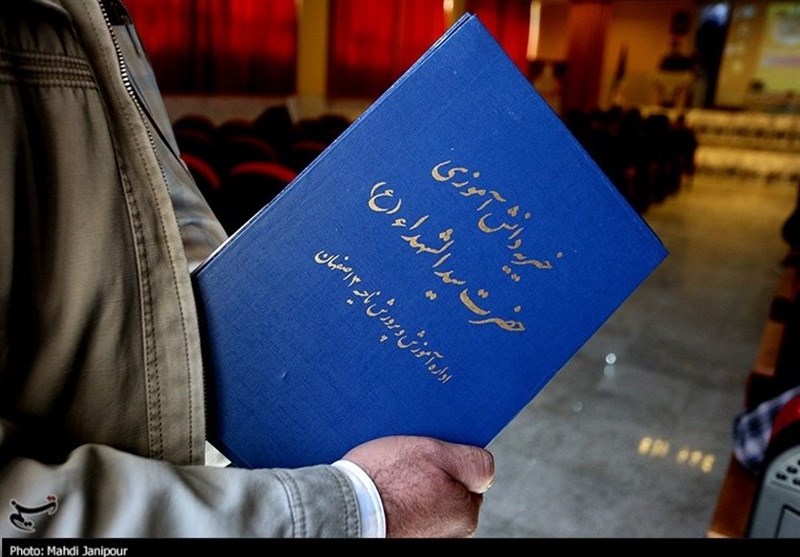 خیریه دانش آموزی
حضرت سیدالشهداء (ع)
اداره آموزش و پرورش ناحیه ۳ اصفهان
تسنیم
Photo: Mahdi Janipour